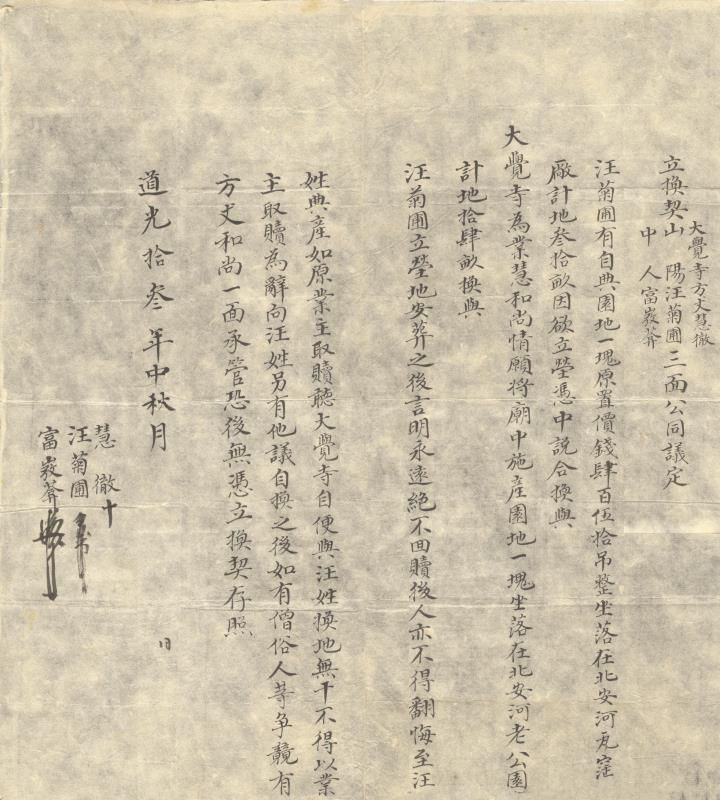 大覺寺方丈慧徹
立換契山陽汪菊圃三面公同議定
中人富嵗葊
汪菊圃有自典園地一塊原置價錢肆百伍拾吊整坐落在北安河瓦窰
廠計地叁拾畝因欲立塋憑中説合換與
大覺寺為業慧和尚情願將廟中施産園地一塊坐落在北安河老公園
計地拾肆畝換與
汪菊圃立塋地安葬之後言明永遠絕不回贖後人亦不得翻悔至汪
姓典産如原業主取贖聽大覺寺自便與汪姓換地無干不得以業
主取贖為辭向汪姓另有他議自換之後如有僧俗人等争競有
方丈和尚一面承管恐後無憑立換契存照
道光拾叁年中秋月 日
慧徹十
汪菊圃
富嵗葊